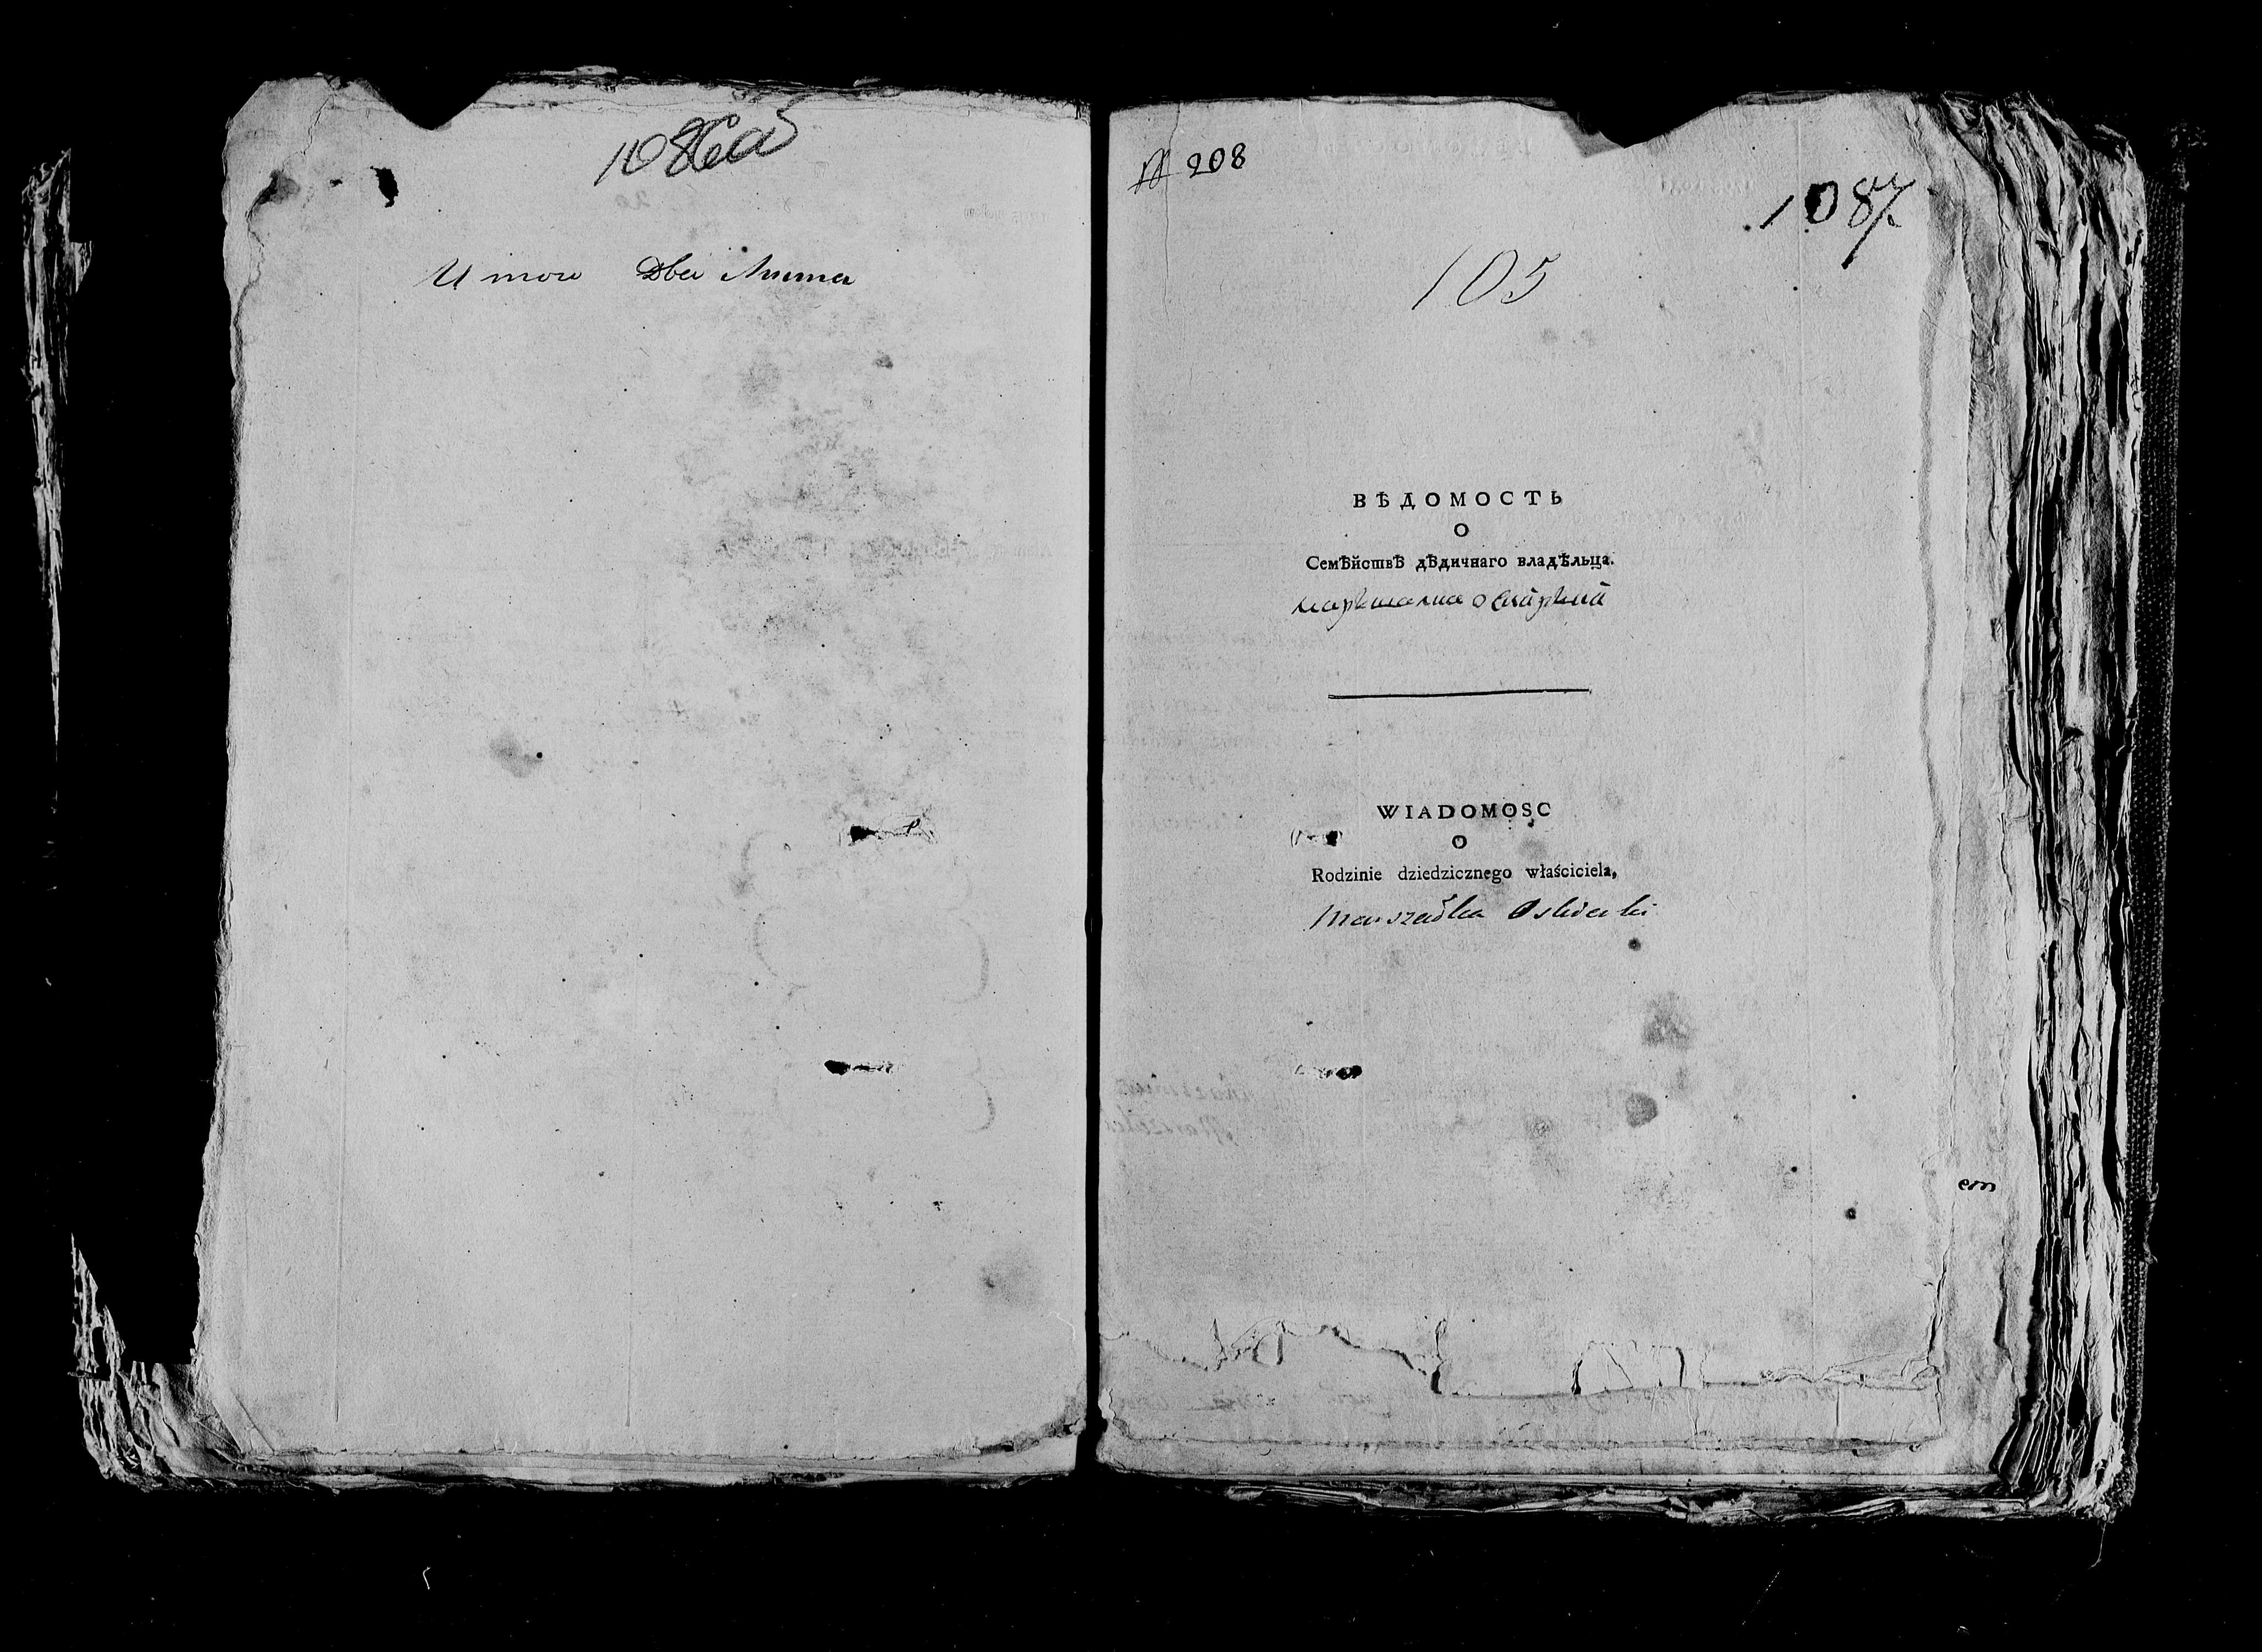 1086об
Итого Два Листа
№ 208
1087
105
ВѢДОМОСТЬ
О
Семѣйствѣ дѣдичнаго владѣльца.
маршалка Оскѣрки
WIADOMOSC
O
Rodzinie dziedzicznego właściciela,
Marszałka Oskierki